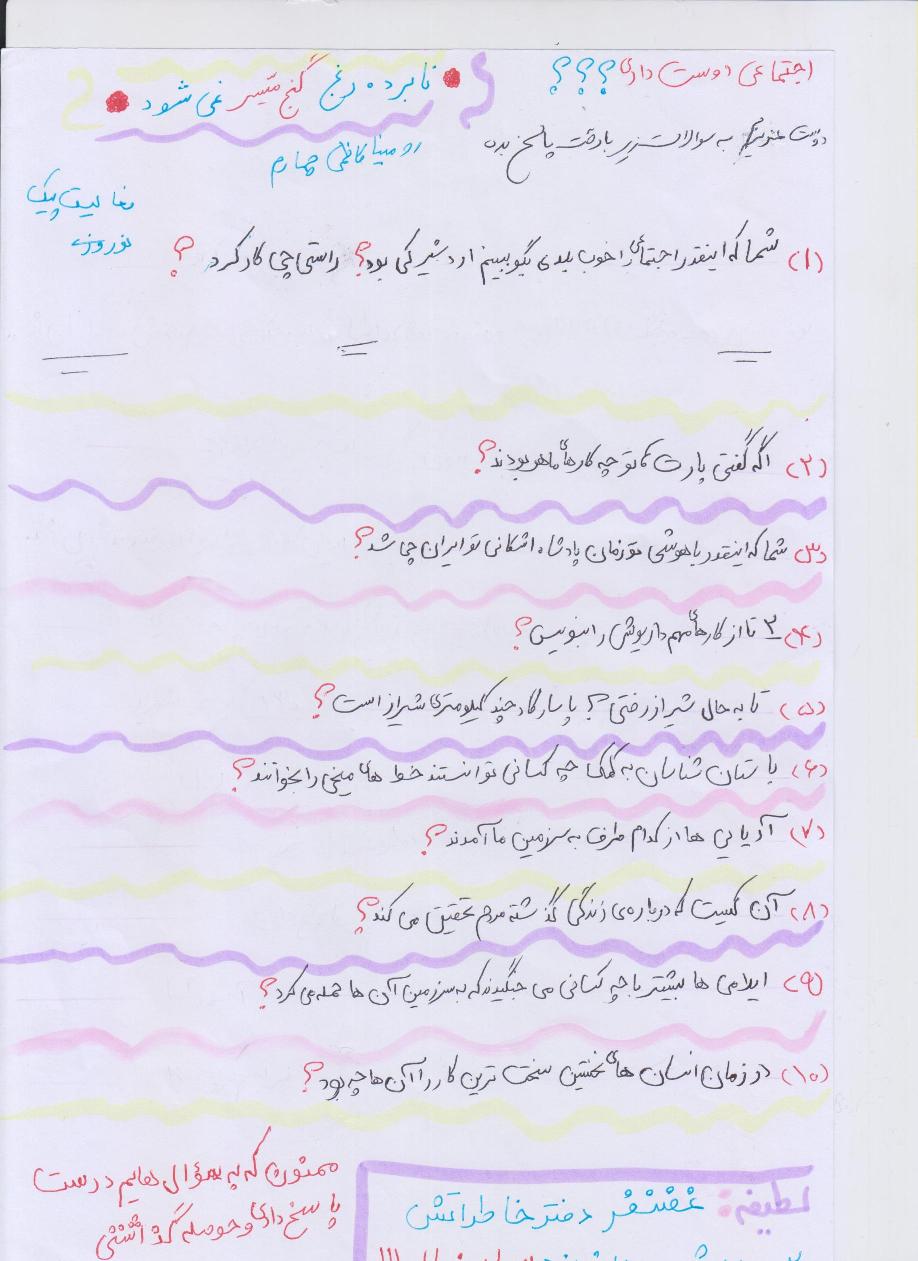 اجتماعی دوست داری؟؟؟
نابرده رنج گنج میّسر نمی شود
دوست عزیزم به سوالات زیر با دقت پاسخ بده
رومینا کاظمی چهارم
فعالیت پیک
نوروزی
(۱) شما که اینقدر اجتماعی را خوب بلدی بگو ببینم اردشیر کی بود؟ راستی چی کار کرد؟
(۲) اگه گفتی پارت ها تو چه کارهای ماهر بودند؟
(۳) شما که اینقدر باهوشی تو زمان پادشاه اشکانی تو ایران چی شد؟
(۴) ۲ تا از کارهای مهم داریوش را بنویس؟
(۵) تا به حال شیراز رفتی؟ پاسارگاد چند کیلومتری شیراز است؟
(۶) باستان شناسان به کمک چه کسانی توانستند خط های میخی را بخوانند؟
(۷) آریایی ها از کدام طرف به سرزمین ما آمدند؟
(۸) آن کیست که درباره ی زندگی گذشته مردم تحقیق می کند؟
(۹) ایلامی ها بیشتر با چه کسانی می جنگیدند که به سرزمین آن ها حمله می کرد؟
(۱۰) در زمان انسان های نخستین سخت ترین کار را آن ها چه بود؟
ممنون که به سؤال هایم درست
پاسخ دادی و حوصله گذاشتی
لطیفه: غضنفر دفتر خاطراتش